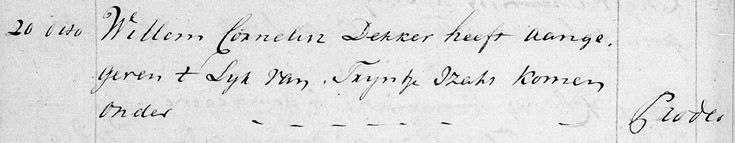 20 dito Willem Cornelisz Dekker heeft aange,
geven t Lyk van Tryntje Izaks Komen
onder - - - - - - - Prodeo